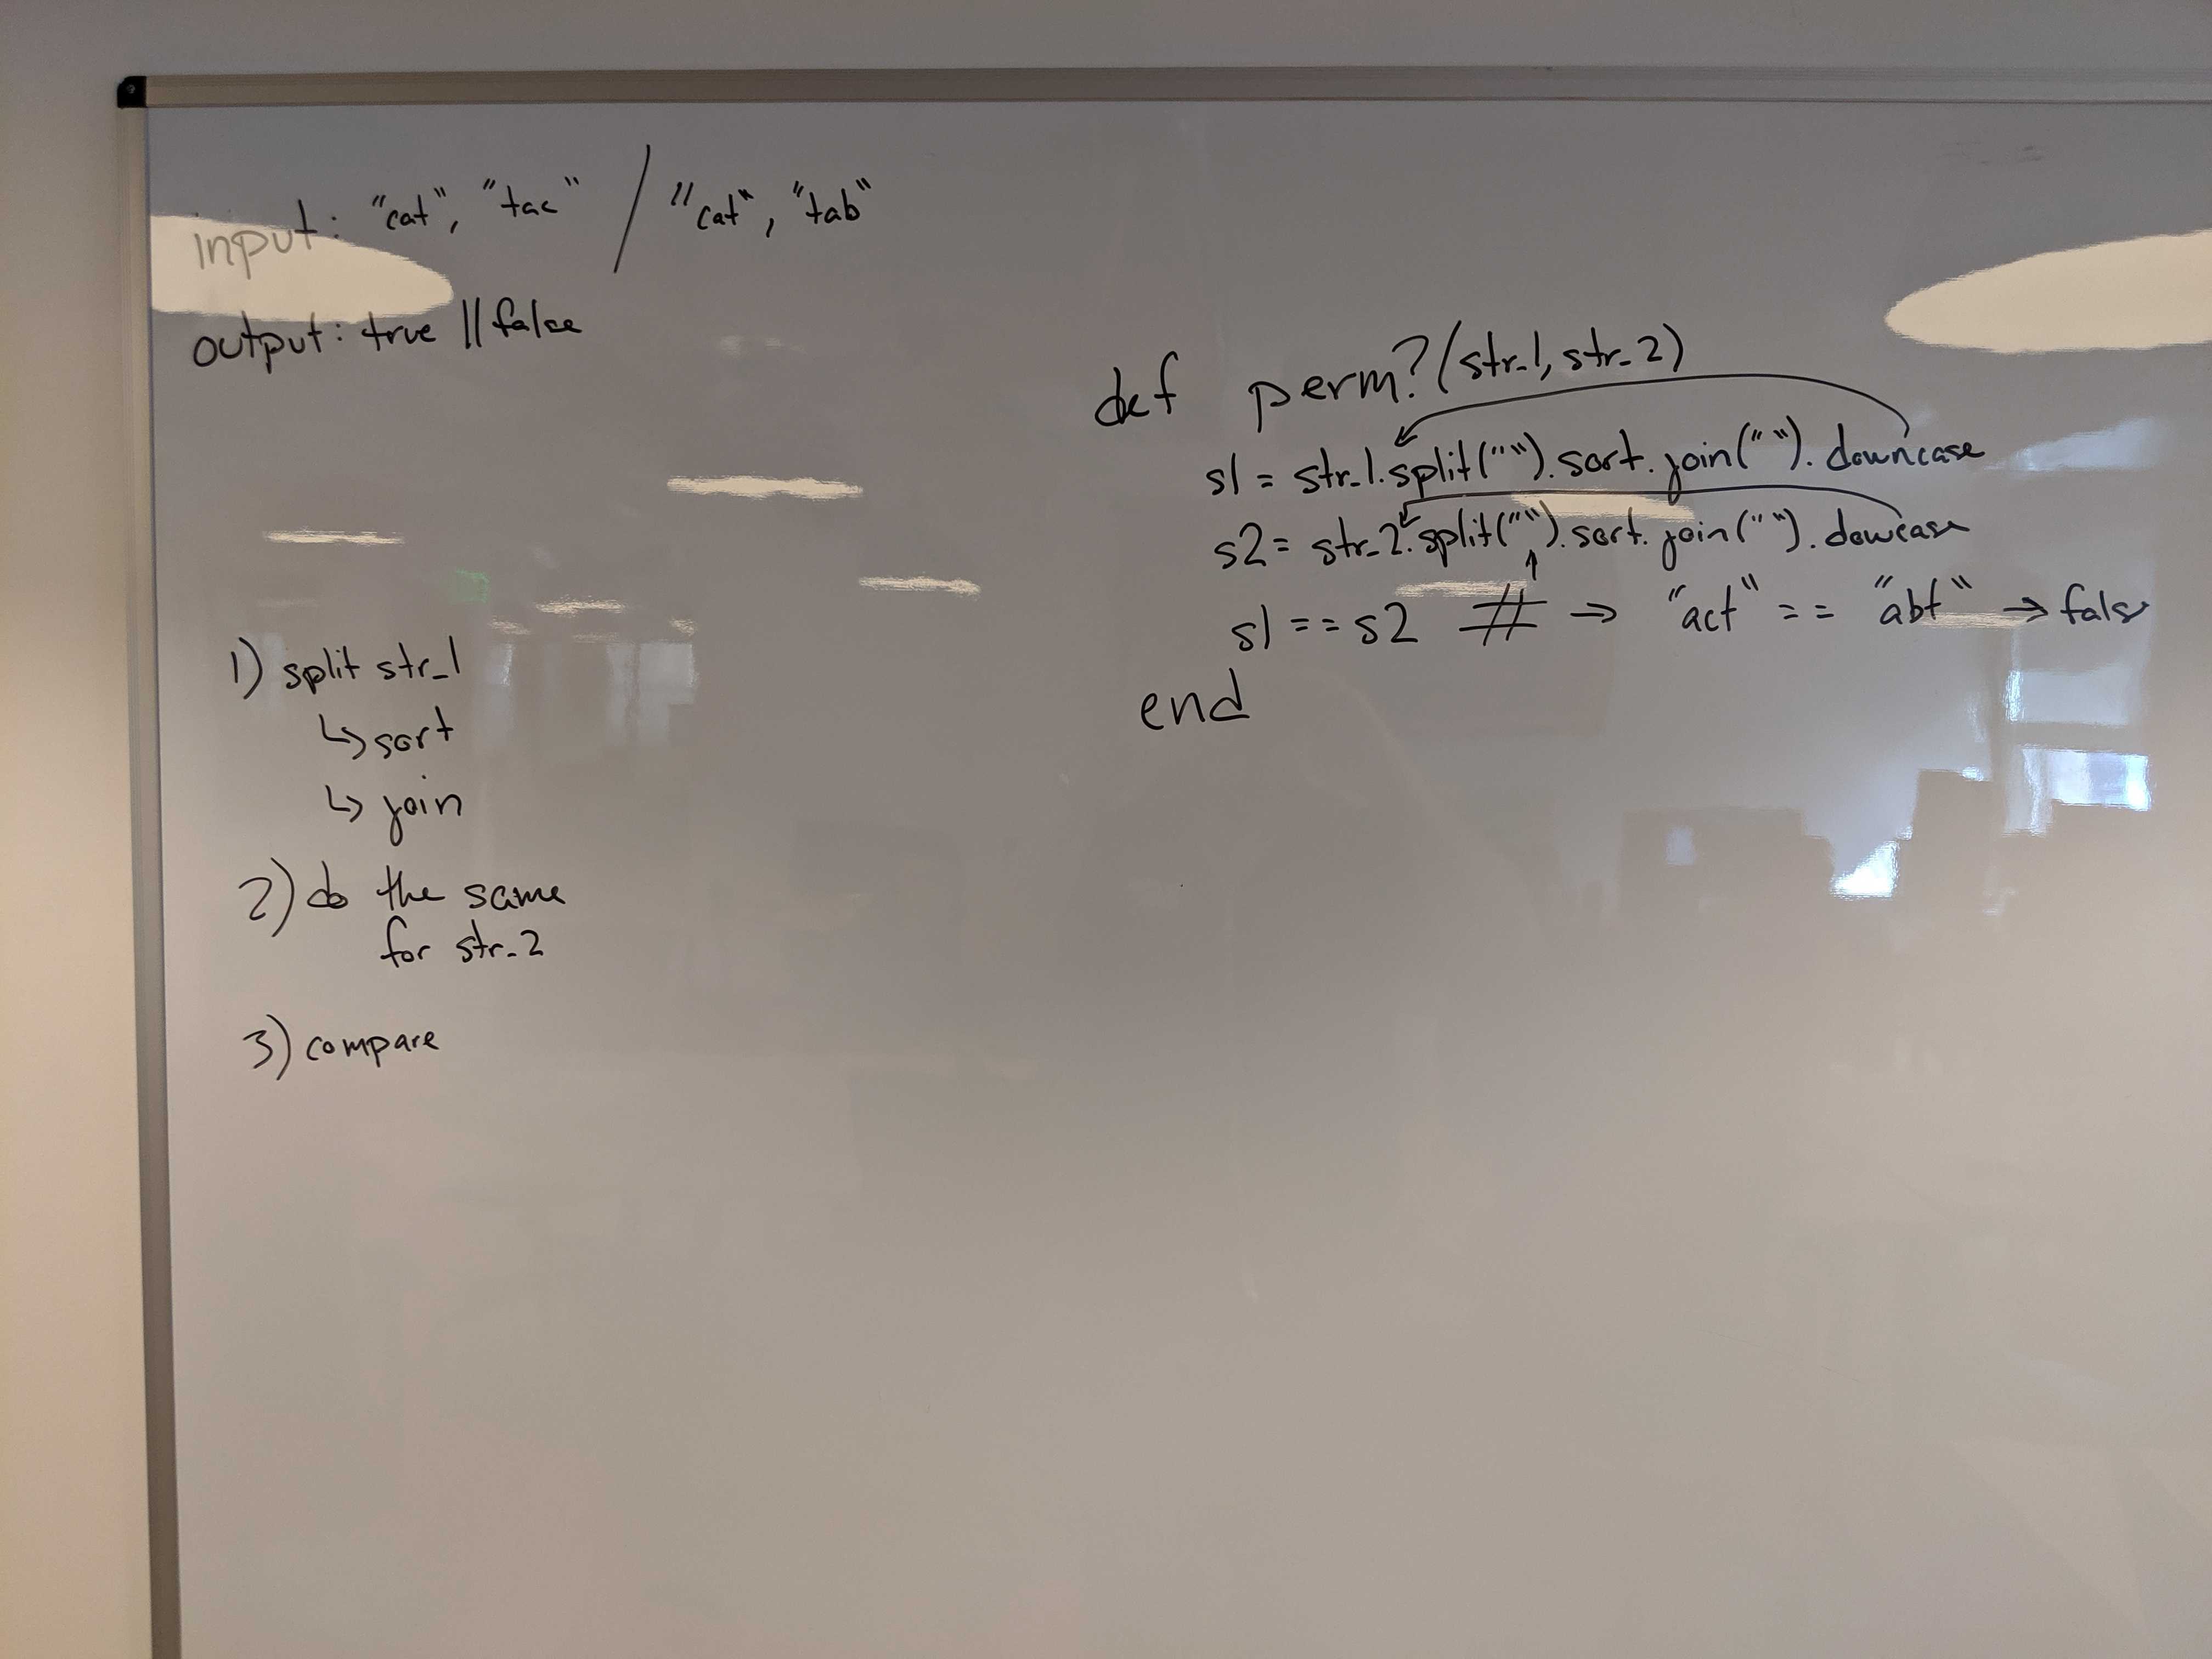 input: "cat", "tac" / "cat", "tab"
output: true || false
1) split str_1
↳ sort
↳ join
2) do the same
for str_2
3) compare
def perm?(str_1, str_2)
s1 = str_1.split("").sort.join("").downcase
s2 = str_2.split("").sort.join("").dowcase
s1 == s2 # → "act" == "abt" → fals
end